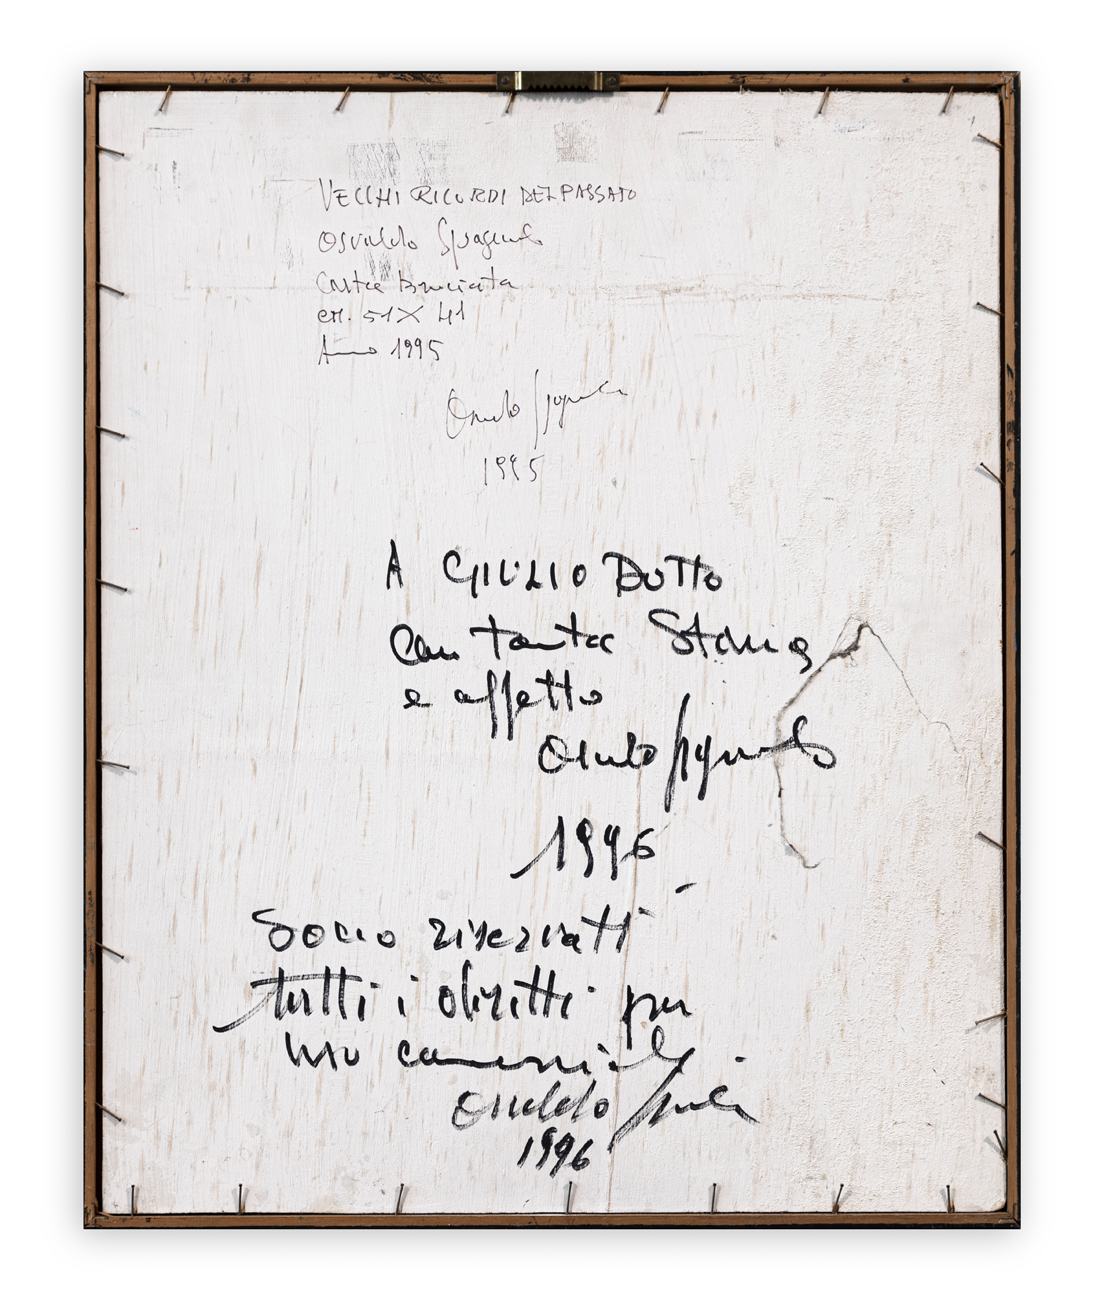 VECCHI RICORDI DEL PASSATO
Osvaldo Spagnulo
Carta Bruciata
cm. 51 X 41
Anno 1995
Osvaldo Spagnulo
1995
A GIULIO DOTTO
con tanta Stima
e affetto
Osvaldo Spagnulo
1996
Sono riservati
tutti i diritti per
uso commerciale
Osvaldo Spagnulo
1996